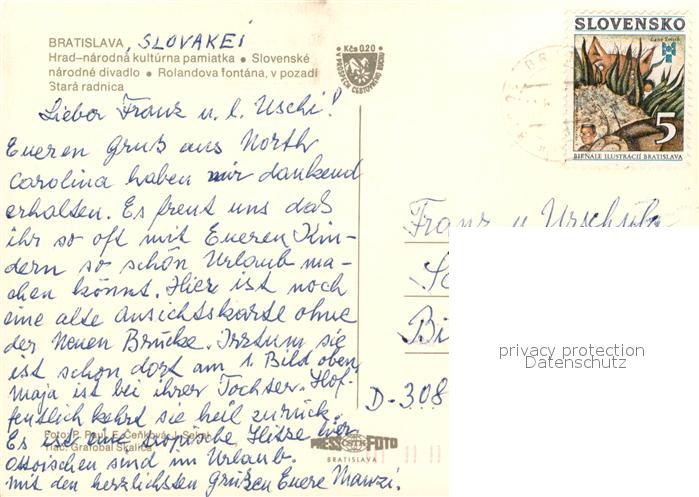 BRATISLAVA, SLOVAKEI
Hrad–národná kultúrna pamiatka • Slovenské
národné divadlo • Rolandova fontána, v pozadí
Stará radnica
Kčs 0.20
V PROSPECH CESTOVNÉHO RUCHU
SLOVENSKO
5
BIENALE ILUSTRÁCIÍ BRATISLAVA
Lieber Franz u. l. Uschi!
Eueren Gruß aus North
Carolina haben wir dankend
erhalten. Es freut uns daß
ihr so oft mit Eueren Kin-
dern so schön Urlaub ma-
chen könnt. Hier ist noch
eine alte Ansichtskarte ohne
der Neuen Brücke. Irrtum sie
ist schon dort am 1. Bild oben.
Maja ist bei ihrer Tochter. Hof-
fentlich kehrt sie heil zurück.
Es ist eine tropische Hitze hier
sind im Urlaub.
Mit den herzlichsten Grüßen Euere
Foto: P. Paul, E. Čeňková, J.
Tlač: Grafobal Skalica
PRESSFOTO
BRATISLAVA
Franz u.
D-308
privacy protection
Datenschutz